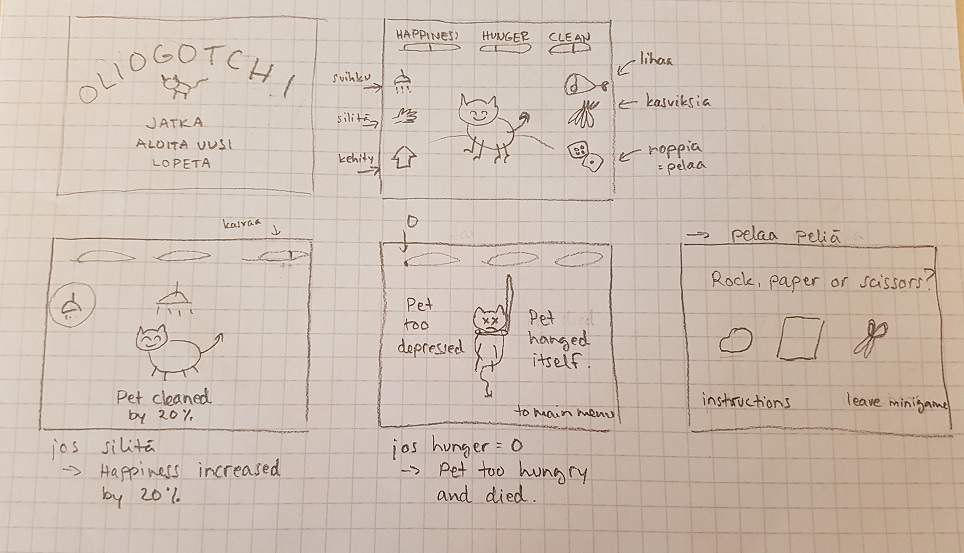 OLIOGOTCHI
JATKA
ALOITA UUSI
LOPETA
HAPPINESS HUNGER CLEAN
suihku
silitä
kehity
lihaa
kasviksia
noppia
= pelaa
kasvaa
Pet cleaned
by 20%
jos silitä
→ Happiness increased
by 20%
0
Pet
too
depressed
Pet
hanged
itself.
to main menu
jos hunger = 0
→ Pet too hungry
and died.
→ pelaa peliä
Rock, paper or scissors?
instructions leave minigame